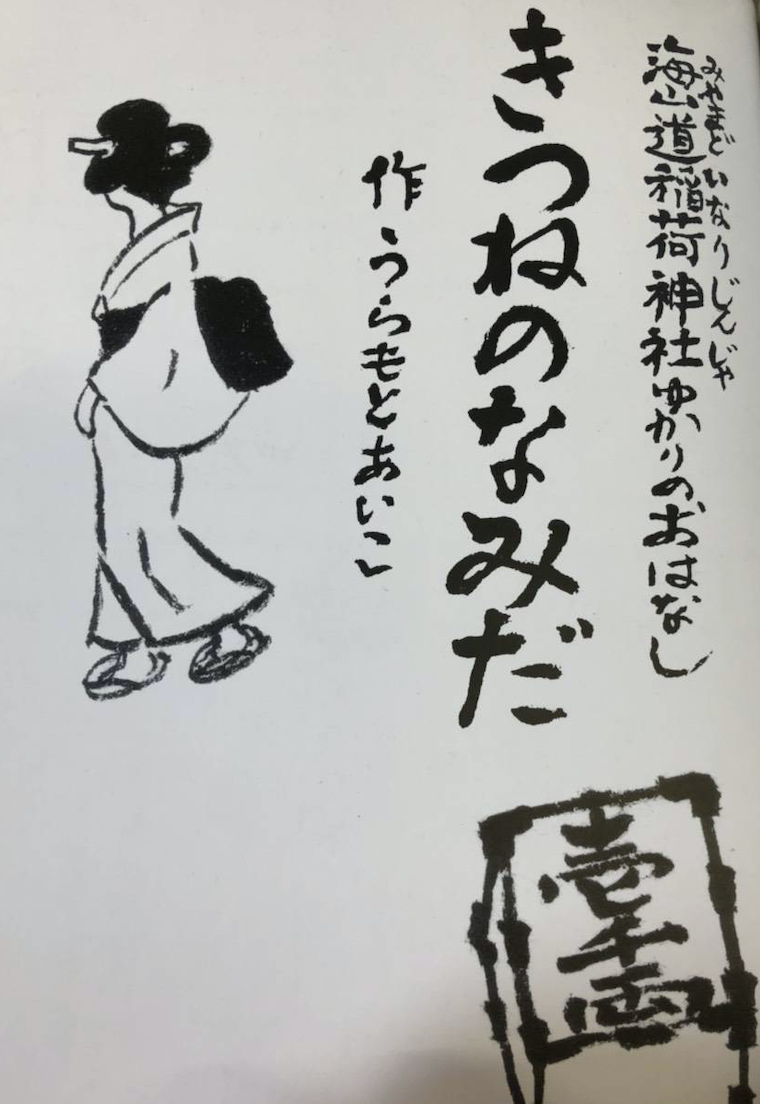 海山道稲荷神社ゆかりのおはなし
みやまどいなりじんじゃ
きつねのなみだ
作 うらもとあいこ
壱千両